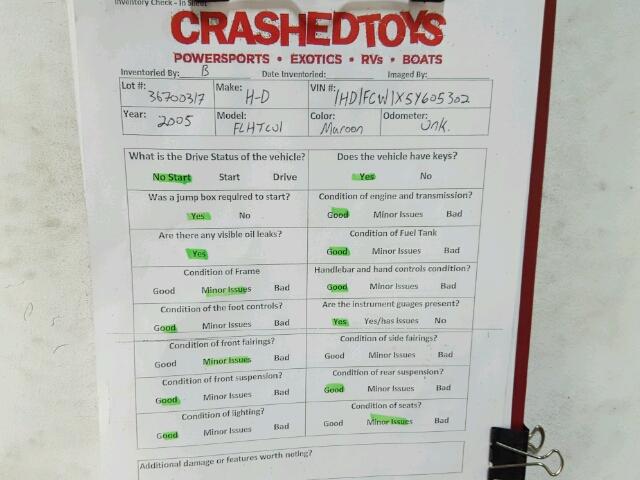 Inventory Check - In Sheet
CRASHEDTOYS
POWERSPORTS • EXOTICS • RVs • BOATS
Inventoried By: B Date Inventoried: Imaged By:
Lot #: 36700317 Make: H-D VIN #: 1HD1FCW1X5Y605302
Year: 2005 Model: FLHTCUI Color: Maroon Odometer: Unk.
What is the Drive Status of the vehicle? Does the vehicle have keys?
No Start Start Drive Yes No
Was a jump box required to start? Condition of engine and transmission?
Yes No Good Minor Issues Bad
Are there any visible oil leaks? Condition of Fuel Tank
Yes Good Minor Issues Bad
Condition of Frame Handlebar and hand controls condition?
Good Minor Issues Bad Good Minor Issues Bad
Condition of the foot controls? Are the instrument guages present?
Good Minor Issues Bad Yes Yes/has Issues No
Condition of front fairings? Condition of side fairings?
Good Minor Issues Bad Good Minor Issues Bad
Condition of front suspension? Condition of rear suspension?
Good Minor Issues Bad Good Minor Issues Bad
Condition of lighting? Condition of seats?
Good Minor Issues Bad Good Minor Issues Bad
Additional damage or features worth noting?